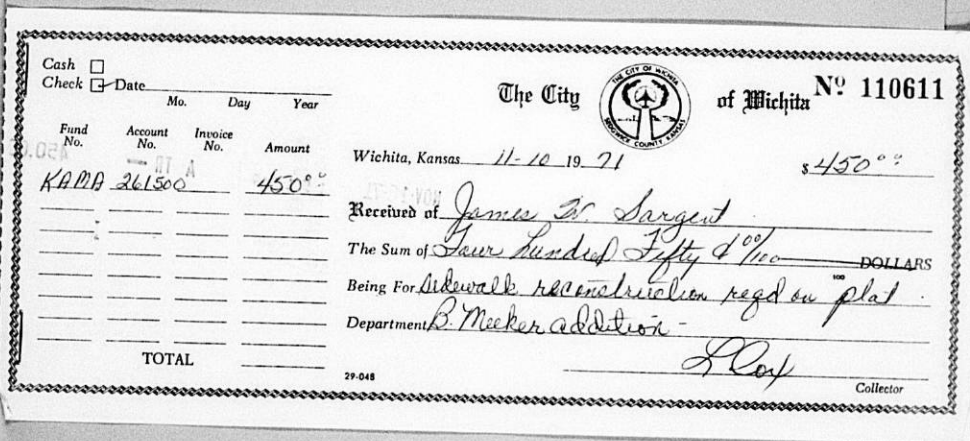 Cash
Check Date
Mo. Day Year
Fund No. Account No. Invoice No. Amount
KAMA 261500 450⁰⁰
TOTAL
The City of Wichita Nº 110611
THE CITY OF WICHITA
SEDGWICK COUNTY, KANSAS
Wichita, Kansas 11-10 1971 $450⁰⁰
Received of James W. Sargent
The Sum of Four hundred Fifty & 00/100 DOLLARS
100
Being For sidewalk reconstruction reqd on plat
Department B. Meeker addition -
L Cox
29-048 Collector